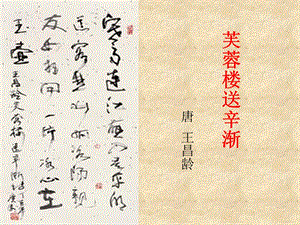 芙蓉楼送辛渐
唐 王昌龄
寒雨连江夜入吴平明
送客楚山孤洛阳親
友如相问一片冰心在
玉壶 王昌龄芙蓉楼送辛渐